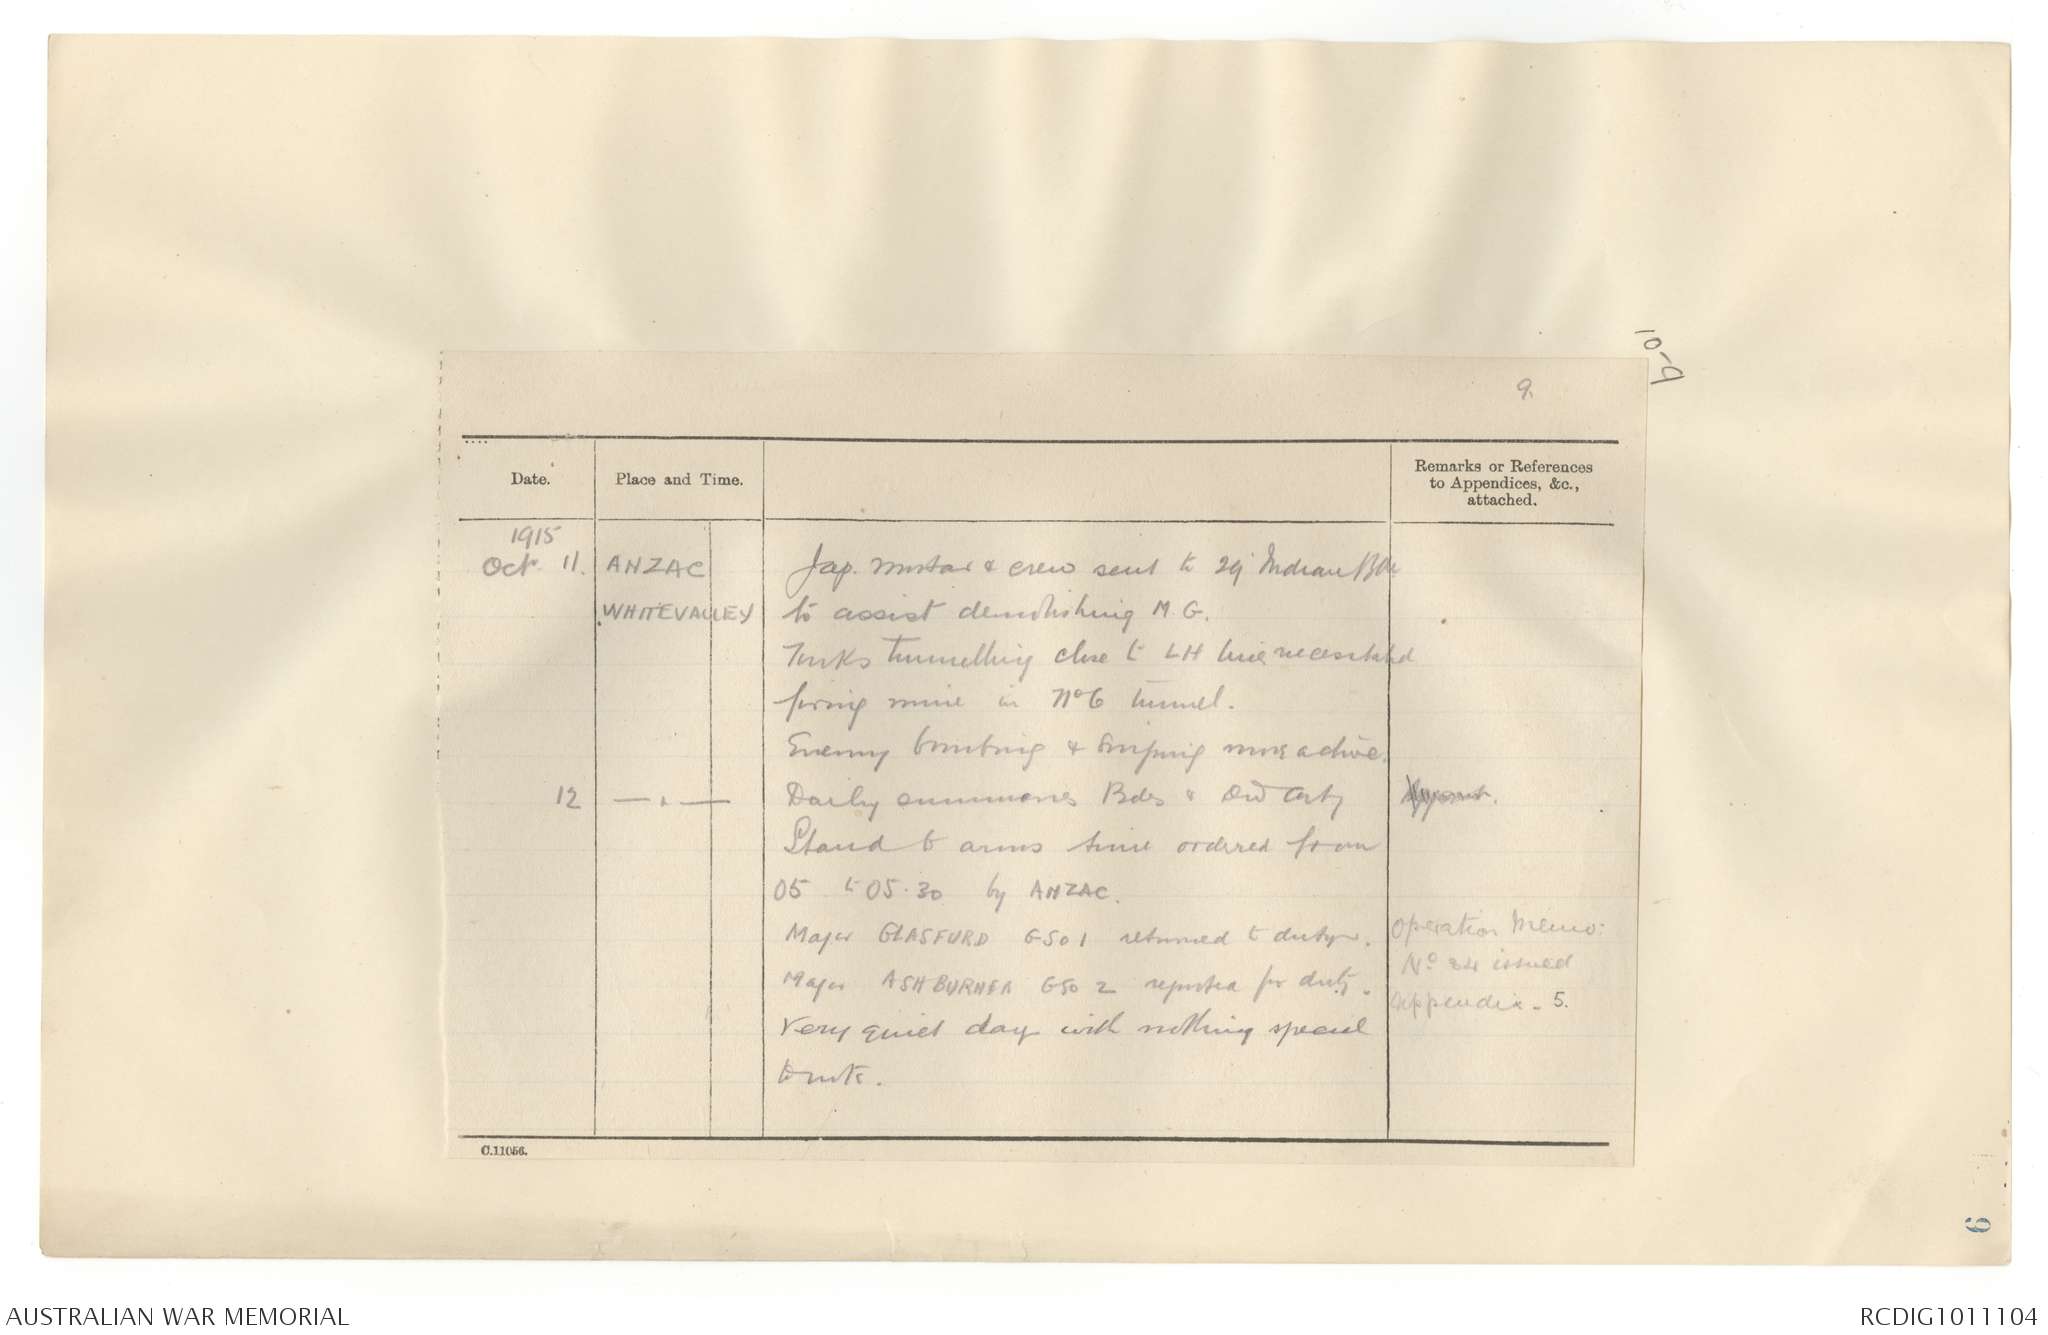 10-9
9.
Date.
Place and Time.
Remarks or References
to Appendices, &c.,
attached.
1915
Oct 11. ANZAC Jap. mortar & crew sent to 29 Indian Bde
WHITE VALLEY to assist demolishing M.G.
Turks tunnelling close to LH line necessitated
firing mine in No 6 tunnel.
Enemy bombing & sniping more active.
12 —"— Daily summaries Bdes & Div Arty
Stand to arms time ordered from
05 to 05.30 by ANZAC.
Major GLASFURD GSO1 returned to duty. Operation Memo:
No 34 issued
Major ASHBURNER GSO 2 reported for duty. Appendix - 5.
Very quiet day with nothing special
to note.
C.11056.
9
AUSTRALIAN WAR MEMORIAL
RCDIG1011104